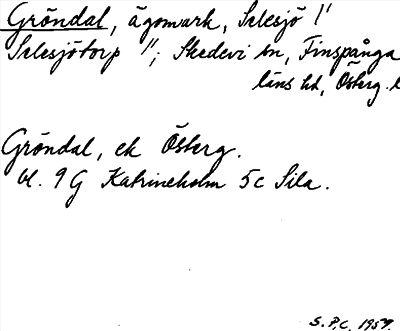 Gröndal, ägomark, Selesjö 1"
Selesjötorp 1"; Skedevi sn, Finspånga
läns hd, Österg. l
Gröndal, ek Österg.
bl. 9G Katrineholm 5c Sila.
S.P.C. 1957.